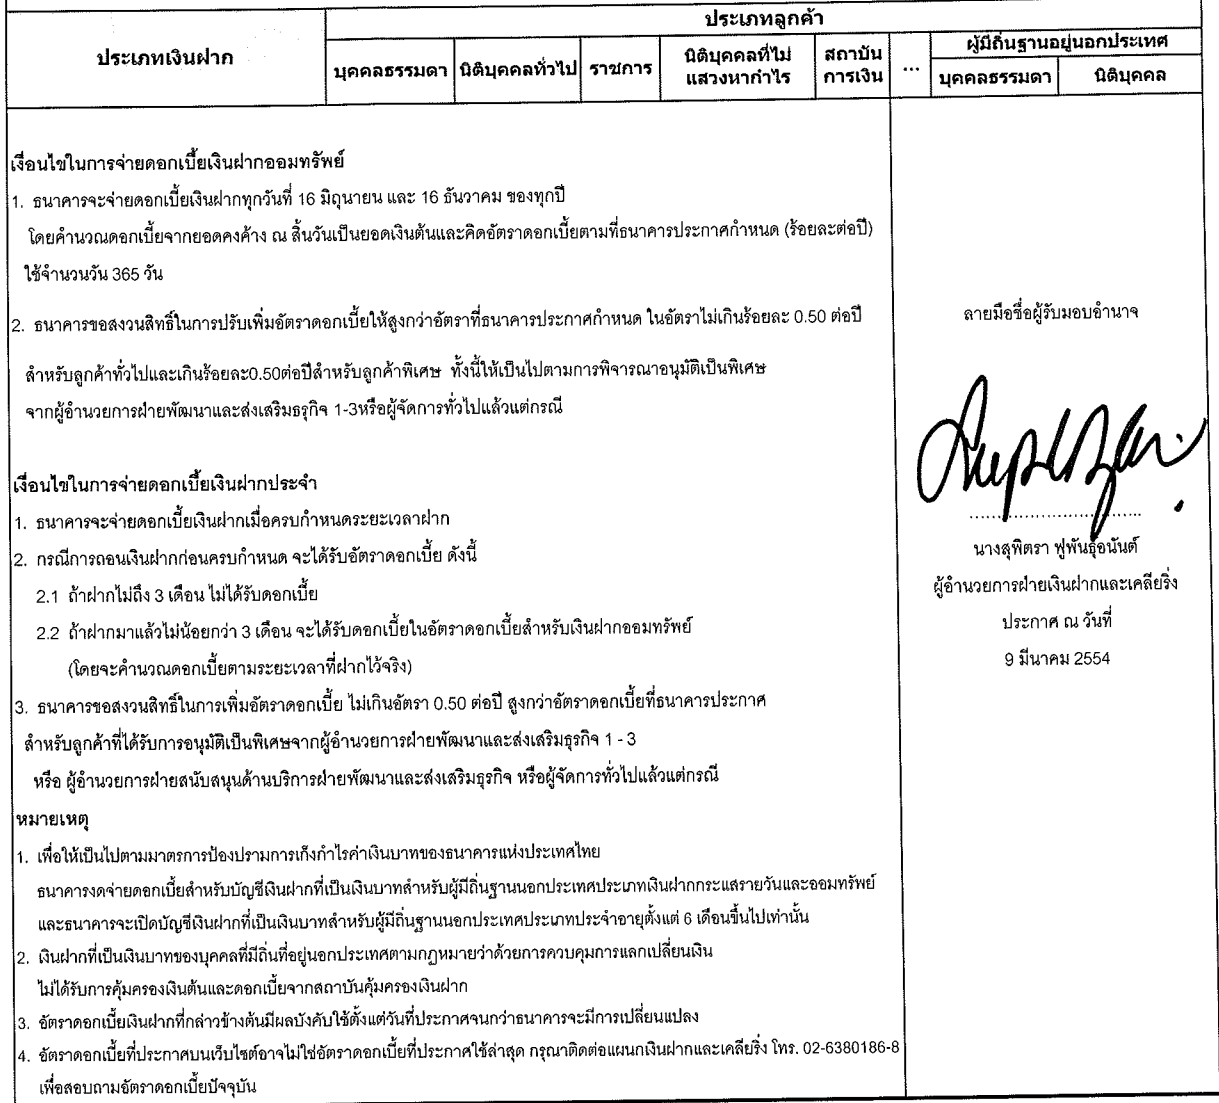 ประเภทลูกค้า
ประเภทเงินฝาก
บุคคลธรรมดา นิติบุคคลทั่วไป ราชการ นิติบุคคลที่ไม่แสวงหากำไร สถาบันการเงิน ... ผู้มีถิ่นฐานอยู่นอกประเทศ
บุคคลธรรมดา นิติบุคคล
เงื่อนไขในการจ่ายดอกเบี้ยเงินฝากออมทรัพย์
1. ธนาคารจะจ่ายดอกเบี้ยเงินฝากทุกวันที่ 16 มิถุนายน และ 16 ธันวาคม ของทุกปี
โดยคำนวณดอกเบี้ยจากยอดคงค้าง ณ สิ้นวันเป็นยอดเงินต้นและคิดอัตราดอกเบี้ยตามที่ธนาคารประกาศกำหนด (ร้อยละต่อปี)
ใช้จำนวนวัน 365 วัน
2. ธนาคารขอสงวนสิทธิ์ในการปรับเพิ่มอัตราดอกเบี้ยให้สูงกว่าอัตราที่ธนาคารประกาศกำหนด ในอัตราไม่เกินร้อยละ 0.50 ต่อปี
สำหรับลูกค้าทั่วไปและเกินร้อยละ0.50ต่อปีสำหรับลูกค้าพิเศษ ทั้งนี้ให้เป็นไปตามการพิจารณาอนุมัติเป็นพิเศษ
จากผู้อำนวยการฝ่ายพัฒนาและส่งเสริมธรุกิจ 1-3หรือผู้จัดการทั่วไปแล้วแต่กรณี
เงื่อนไขในการจ่ายดอกเบี้ยเงินฝากประจำ
1. ธนาคารจะจ่ายดอกเบี้ยเงินฝากเมื่อครบกำหนดระยะเวลาฝาก
2. กรณีการถอนเงินฝากก่อนครบกำหนด จะได้รับอัตราดอกเบี้ย ดังนี้
2.1 ถ้าฝากไม่ถึง 3 เดือน ไม่ได้รับดอกเบี้ย
2.2 ถ้าฝากมาแล้วไม่น้อยกว่า 3 เดือน จะได้รับดอกเบี้ยในอัตราดอกเบี้ยสำหรับเงินฝากออมทรัพย์
(โดยจะคำนวณดอกเบี้ยตามระยะเวลาที่ฝากไว้จริง)
3. ธนาคารขอสงวนสิทธิ์ในการเพิ่มอัตราดอกเบี้ย ไม่เกินอัตรา 0.50 ต่อปี สูงกว่าอัตราดอกเบี้ยที่ธนาคารประกาศ
สำหรับลูกค้าที่ได้รับการอนุมัติเป็นพิเศษจากผู้อำนวยการฝ่ายพัฒนาและส่งเสริมธุรกิจ 1 - 3
หรือ ผู้อำนวยการฝ่ายสนับสนุนด้านบริการฝ่ายพัฒนาและส่งเสริมธุรกิจ หรือผู้จัดการทั่วไปแล้วแต่กรณี
หมายเหตุ
1. เพื่อให้เป็นไปตามมาตรการป้องปรามการเก็งกำไรค่าเงินบาทของธนาคารแห่งประเทศไทย
ธนาคารงดจ่ายดอกเบี้ยสำหรับบัญชีเงินฝากที่เป็นเงินบาทสำหรับผู้มีถิ่นฐานนอกประเทศประเภทเงินฝากกระแสรายวันและออมทรัพย์
และธนาคารจะเปิดบัญชีเงินฝากที่เป็นเงินบาทสำหรับผู้มีถิ่นฐานนอกประเทศประเภทประจำอายุตั้งแต่ 6 เดือนขึ้นไปเท่านั้น
2. เงินฝากที่เป็นเงินบาทของบุคคลที่มีถิ่นที่อยู่นอกประเทศตามกฎหมายว่าด้วยการควบคุมการแลกเปลี่ยนเงิน
ไม่ได้รับการคุ้มครองเงินต้นและดอกเบี้ยจากสถาบันคุ้มครองเงินฝาก
3. อัตราดอกเบี้ยเงินฝากที่กล่าวข้างต้นมีผลบังคับใช้ตั้งแต่วันที่ประกาศจนกว่าธนาคารจะมีการเปลี่ยนแปลง
4. อัตราดอกเบี้ยที่ประกาศบนเว็บไซต์อาจไม่ใช่อัตราดอกเบี้ยที่ประกาศใช้ล่าสุด กรุณาติดต่อแผนกเงินฝากและเคลียริ่ง โทร. 02-6380186-8
เพื่อสอบถามอัตราดอกเบี้ยปัจจุบัน
ลายมือชื่อผู้รับมอบอำนาจ
นางสุพิตรา ฟูพันธุ์อนันต์
ผู้อำนวยการฝ่ายเงินฝากและเคลียริ่ง
ประกาศ ณ วันที่
9 มีนาคม 2554